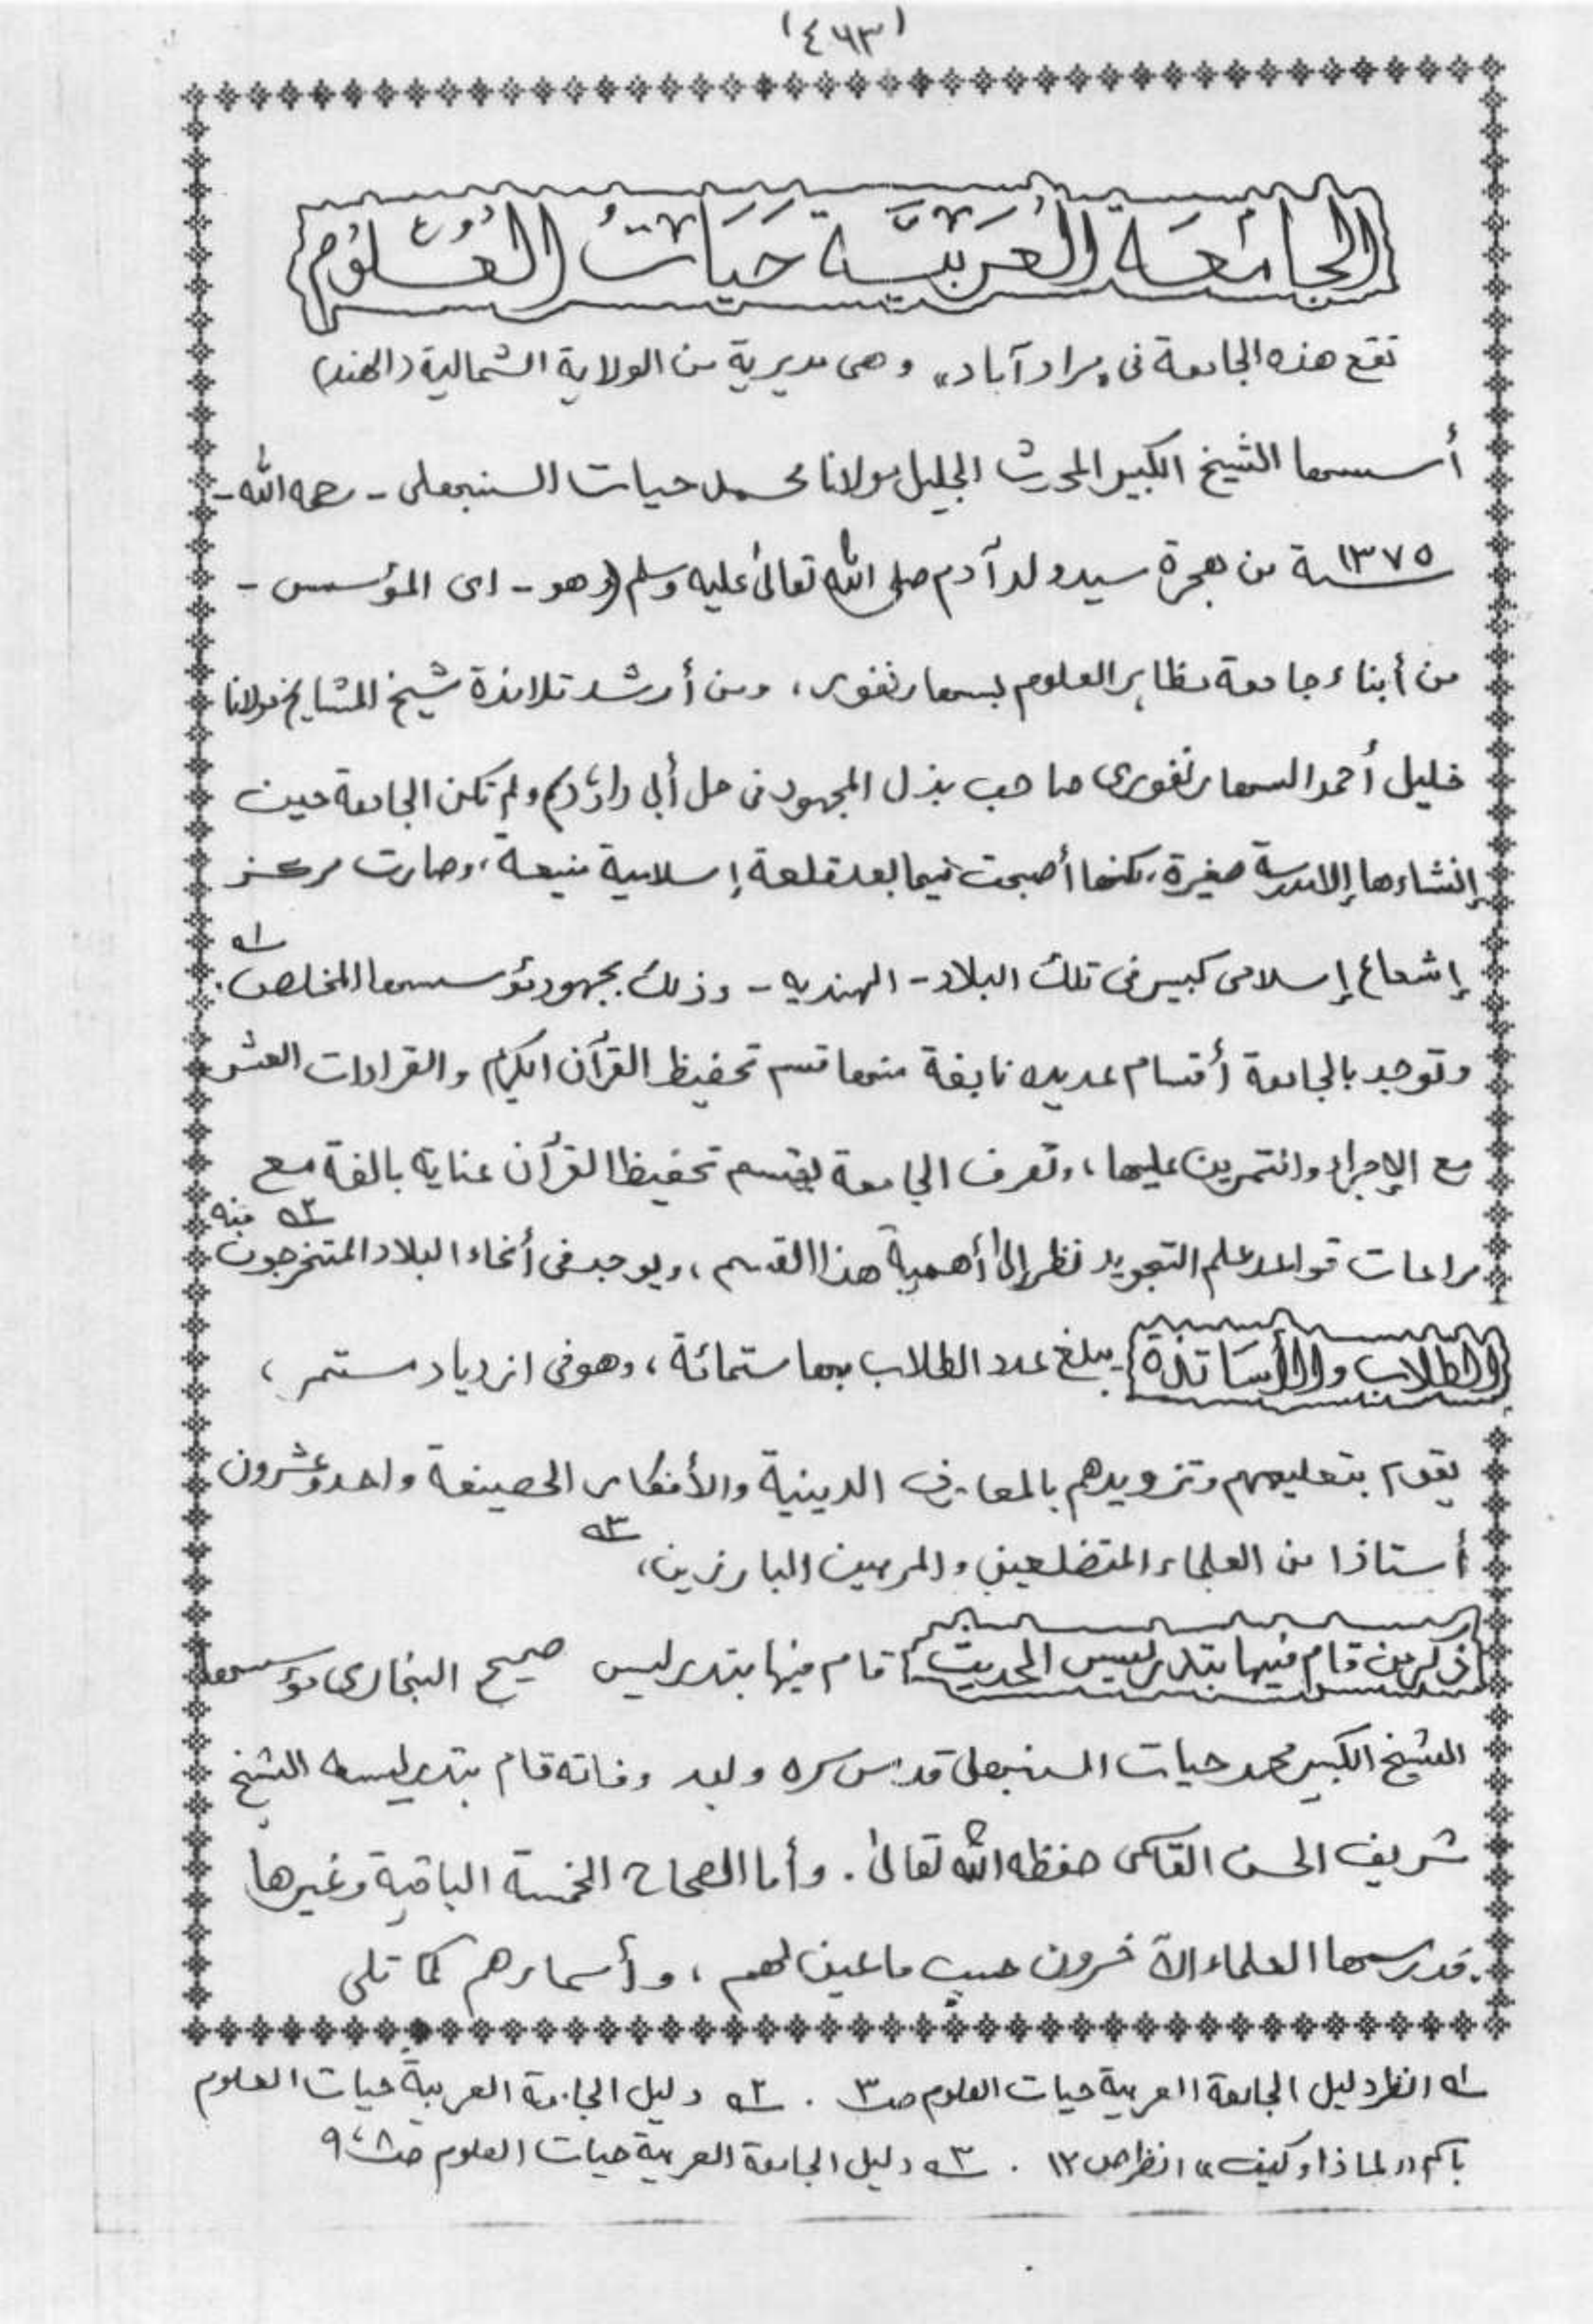 (٤٦٣)
الجَامِعَة العَرَبِيَّة حَيَاتُ العُلُوْم
تقع هذه الجامعة فى "مرادآباد" وهى مديرية من الولاية الشمالية (الهند)
أسسها الشيخ الكبير المحدث الجليل مولانا محمد حيات السنبهلى - رحمه الله -
سنة ١٣٧٥ من هجرة سيد ولد آدم صلى الله تعالىٰ عليه وسلم (وهو - اى المؤسس -
من أبناء جامعة مظاہر العلوم بسهارنفور، ومن أرشد تلامذة شيخ المشايخ مولانا
خليل أحمد السهارنفورى صاحب بذل المجهود فى حل أبي داؤد) ولم تكن الجامعة حين
إنشاءها إلا مدرسة صغيرة، لكنها أصبحت فيما بعد قلعة إسلامية منيعة، وصارت مركز
إشعاع إسلامى كبير فى تلك البلاد - الهنديه - وذلك بجهود مؤسسها المخلص. ؎١
وتوجد بالجامعة أقسام عديده نابغة منها قسم تحفيظ القرآن الكريم والقراءات العشر
مع الإجراء والتمرين عليها، وتعرف الجامعة بقسم تحفيظ القرآن عناية بالغة مع
مراعات قواعد علم التجويد نظرا إلىٰ أهمية هذا القسم، ويوجد فى أنحاء البلاد المتخرجون منه ؎٢
الطلاب والأسَاتذة يبلغ عدد الطلاب بها ستمائة، وهو فى ازدياد مستمر،
يقوم بتعليمهم وتزويدهم بالمعارف الدينية والأفكار الحصيفة واحد وعشرون
أستاذا من العلماء المتضلعين والمربين البارزين، ؎٣
ذكر من قام فيها بتدريس الحديث قام فيها بتدريس صحيح البخارى مؤسسها
الشيخ الكبير محمد حيات السنبهلى قدس سره وبعد وفاته قام بتدريسه الشيخ
شريف الحسن القاسمى حفظه الله تعالىٰ. وأما الصحاح الخمسة الباقية وغيرها
فدرسها العلماء الآخرون حسب ما عين لهم، وأسماءهم كما تلى
؎١ انظر دليل الجامعة العربية حيات العلوم صـ٣ . ؎٢ دليل الجامعة العربية حيات العلوم
باكم "لماذا وكيف" انظر ص ١٢ . ؎٣ دليل الجامعة العربية حيات العلوم صـ٨، ٩